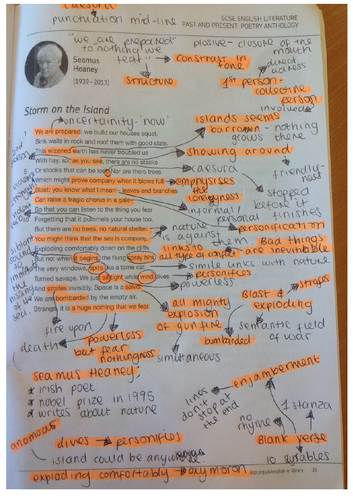 caesura
punctuation mid-line
GCSE ENGLISH LITERATURE
PAST AND PRESENT: POETRY ANTHOLOGY
"we are prepared"
to nothing we
fear"
plosive - closure of the
mouth
Seamus
Heaney
(1939–2013)
contrast in
tone
structure
direct
adress
1st person -
collective
person
involved
Storm on the Island
uncertainity 'now'
islands seems
barron - nothing
grows there
We are prepared: we build our houses squat,
Sink walls in rock and roof them with good slate.
This wizened earth has never troubled us
With hay, so, as you see, there are no stacks
Or stooks that can be lost. Nor are there trees
Which might prove company when it blows full
Blast: you know what I mean - leaves and branches
Can raise a tragic chorus in a gale
So that you can listen to the thing you fear
Forgetting that it pummels your house too.
But there are no trees, no natural shelter.
You might think that the sea is company,
Exploding comfortably down on the cliffs
But no: when it begins, the flung spray hits
The very windows, spits like a tame cat
Turned savage. We just sit tight while wind dives
And strafes invisibly. Space is a salvo.
We are bombarded by the empty air.
Strange, it is a huge nothing that we fear.
showing around
caesura
friendly-
ness
emphasises
the
lonelyness
informal
stopped
before it
finishes
personal
nature
is against
them
personification
Bad things
are inevitable
links to
simile links with nature
personifies
powerless
all mighty
explosion
of gun fire
Blast
exploding
strafes
bombarded
semantic field
of war
fire upon
death
powerless
but fear
nothingness
simultaneous
Seamus Heaney:
irish poet
nobel prize in 1995
writes about nature
enjambment
lines
don't stop at
the end
no
rhyme
1 stanza
Blank verse
10 syllables
dives → personifies
island could be anywhere
exploding comfortably → oxymoron